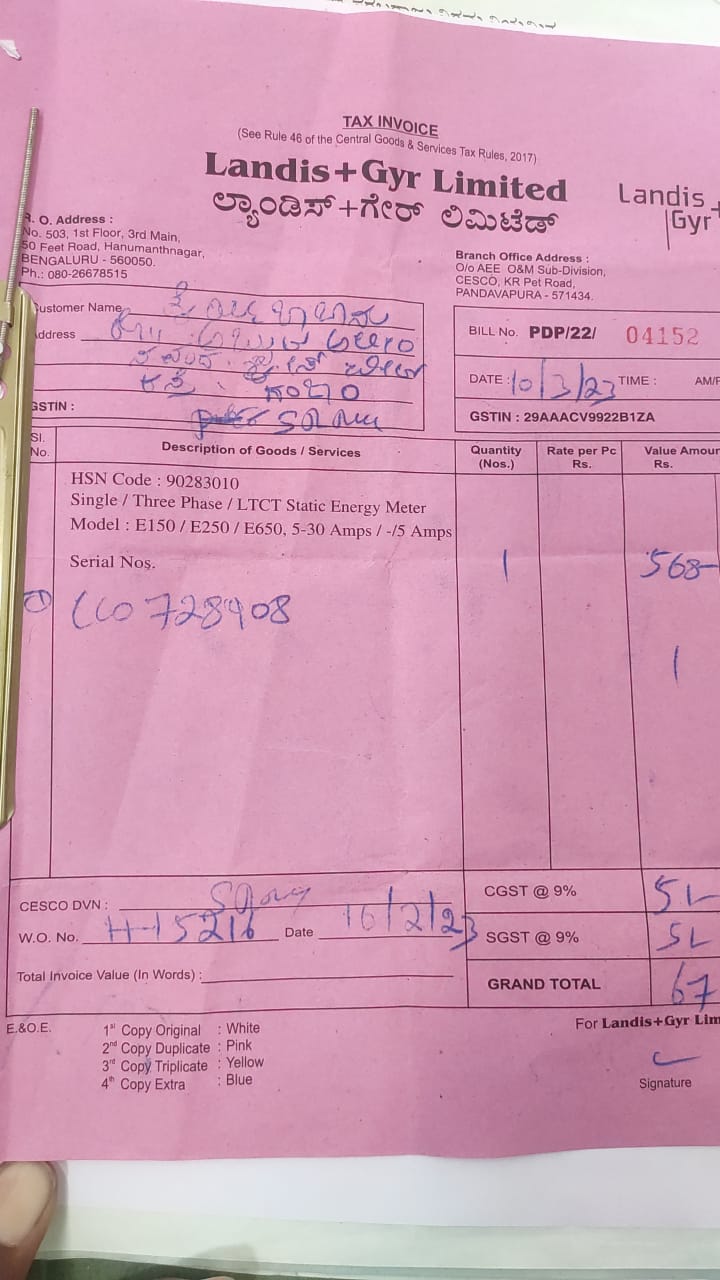 TAX INVOICE
(See Rule 46 of the Central Goods & Services Tax Rules, 2017)
Landis+Gyr Limited
ಲ್ಯಾಂಡಿಸ್+ಗೇರ್ ಲಿಮಿಟೆಡ್
Landis+
Gyr
R. O. Address :
No. 503, 1st Floor, 3rd Main,
50 Feet Road, Hanumanthnagar,
BENGALURU - 560050.
Ph.: 080-26678515
Branch Office Address :
O/o AEE O&M Sub-Division,
CESCO, KR Pet Road,
PANDAVAPURA - 571434.
Customer Name
Address
GSTIN :
BILL No. PDP/22/ 04152
DATE : 10/3/23 TIME : AM/P
GSTIN : 29AAACV9922B1ZA
Sl. No. Description of Goods / Services Quantity (Nos.) Rate per Pc Rs. Value Amoun Rs.
HSN Code : 90283010
Single / Three Phase / LTCT Static Energy Meter
Model : E150 / E250 / E650, 5-30 Amps / -/5 Amps
Serial Nos. 1 568-
① 728908
CESCO DVN :
W.O. No. H-15216 Date 16/2/23
Total Invoice Value (In Words) :
CGST @ 9%
SGST @ 9%
GRAND TOTAL 67
E.&O.E.
1st Copy Original : White
2nd Copy Duplicate : Pink
3rd Copy Triplicate : Yellow
4th Copy Extra : Blue
For Landis+Gyr Lim
Signature